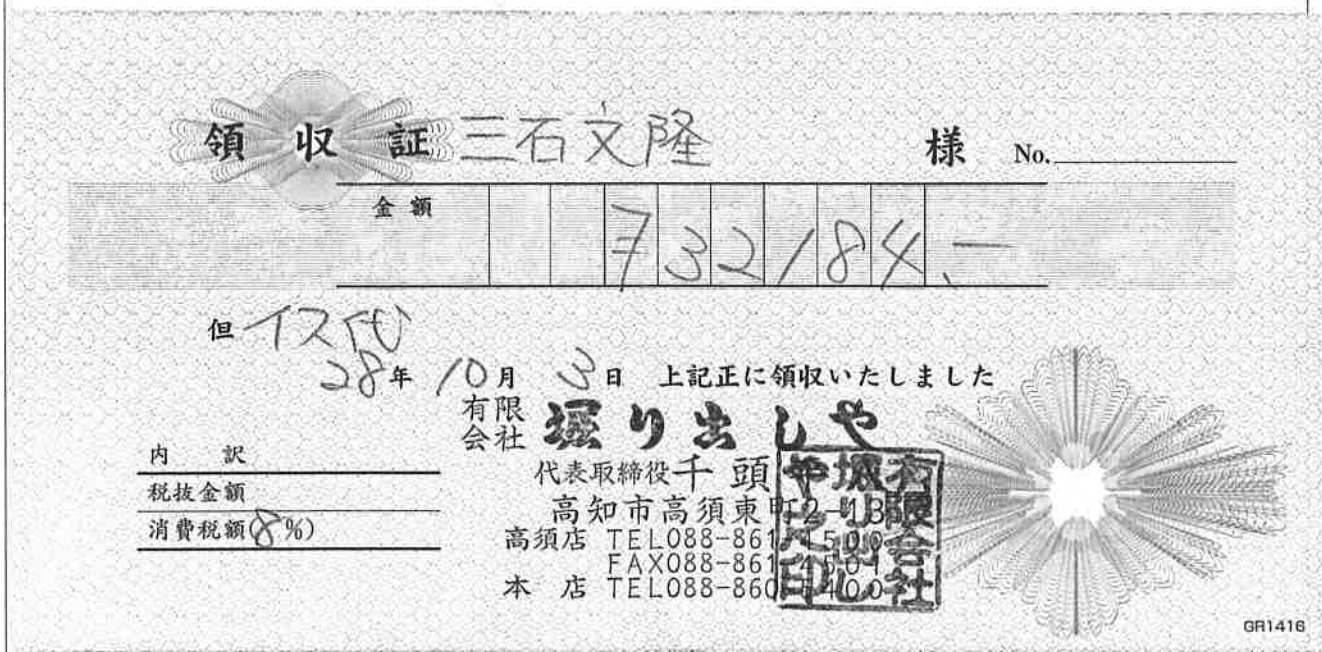 領収証 三石文隆 様 No.
金額 732184.-
但 イス代
28年 10月 3日 上記正に領収いたしました
有限会社 堀り出しや
内訳
代表取締役 千頭
税抜金額
高知市高須東町2-13
消費税額(8%)
高須店 TEL088-861-4500
FAX088-861-4501
本店 TEL088-860-
有限会社堀り出しや之印
GR1416